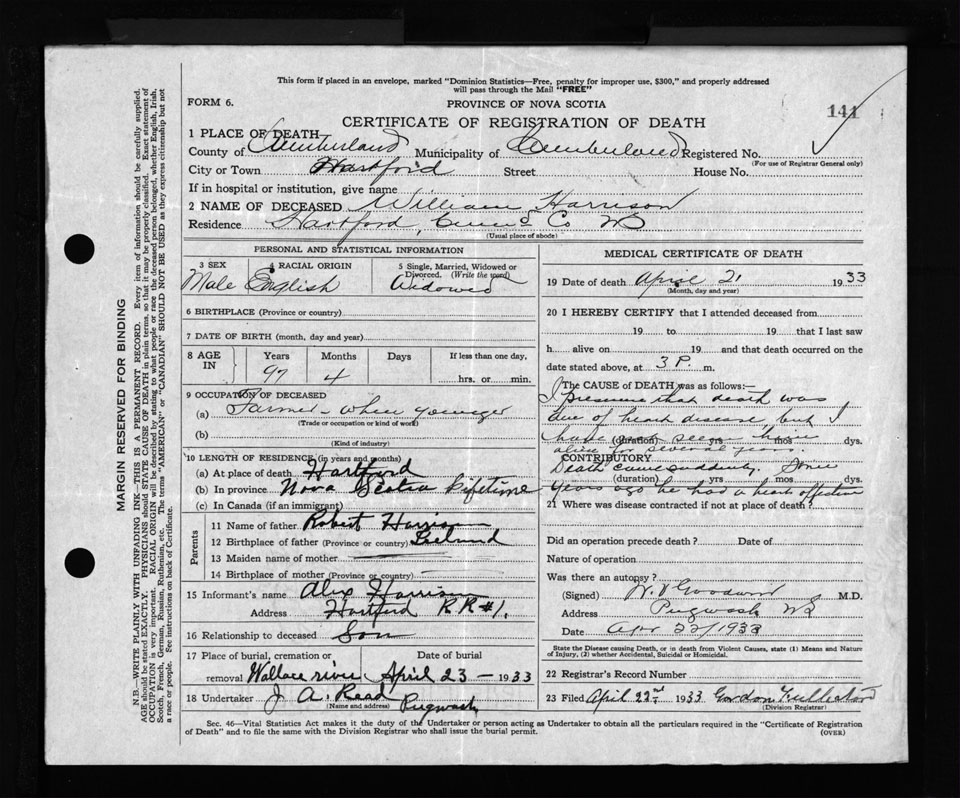 This form if placed in an envelope, marked "Dominion Statistics—Free, penalty for improper use, $300," and properly addressed
will pass through the Mail "FREE"
FORM 6.
PROVINCE OF NOVA SCOTIA
141
CERTIFICATE OF REGISTRATION OF DEATH
1 PLACE OF DEATH
County of Cumberland Municipality of Cumberland Registered No.
(For use of Registrar General only)
City or Town Hartford Street House No.
If in hospital or institution, give name
2 NAME OF DECEASED William Harrison
Residence Hartford, Cum'd Co NS
(Usual place of abode)
PERSONAL AND STATISTICAL INFORMATION
3 SEX 4 RACIAL ORIGIN 5 Single, Married, Widowed or
Divorced. (Write the word)
Male English Widowed
6 BIRTHPLACE (Province or country)
7 DATE OF BIRTH (month, day and year)
8 AGE IN Years Months Days If less than one day,
97 4 hrs. or min.
9 OCCUPATION OF DECEASED
(a) Farmer - when younger
(Trade or occupation or kind of work)
(b)
(Kind of industry)
10 LENGTH OF RESIDENCE (in years and months)
(a) At place of death Hartford
(b) In province Nova Scotia Lifetime
(c) In Canada (if an immigrant)
Parents
11 Name of father Robert Harrison
12 Birthplace of father (Province or country)
13 Maiden name of mother
14 Birthplace of mother (Province or country)
15 Informant's name Alex Harrison
Address Hartford RR#1.
16 Relationship to deceased Son
17 Place of burial, cremation or Date of burial
removal Wallace river April 23 - 1933
18 Undertaker J. A. Read Pugwash
(Name and address)
MEDICAL CERTIFICATE OF DEATH
19 Date of death April 21 1933
(Month, day and year)
20 I HEREBY CERTIFY that I attended deceased from
19 to 19 that I last saw
h alive on 19 and that death occurred on the
date stated above, at 3 P. m.
The CAUSE OF DEATH was as follows:—
I presume that death was
due of heart disease, but I
have not seen him
(duration) yrs mos dys.
alive for several years.
CONTRIBUTORY
Death came suddenly. Some
(duration) yrs mos dys.
years ago he had a heart affection
21 Where was disease contracted if not at place of death?
Did an operation precede death? Date of
Nature of operation
Was there an autopsy?
(Signed) W. V Goodwin M.D.
Address Pugwash NS
Date Apr 22/1933
State the Disease causing Death, or in death from Violent Causes, state (1) Means and Nature
of Injury, (2) whether Accidental, Suicidal or Homicidal.
22 Registrar's Record Number
23 Filed April 22nd 1933 Gordon
(Division Registrar)
Sec. 46—Vital Statistics Act makes it the duty of the Undertaker or person acting as Undertaker to obtain all the particulars required in the "Certificate of Registration
of Death" and to file the same with the Division Registrar who shall issue the burial permit.
(OVER)
MARGIN RESERVED FOR BINDING
N.B.—WRITE PLAINLY WITH UNFADING INK—THIS IS A PERMANENT RECORD. Every item of information should be carefully supplied.
AGE should be stated EXACTLY. PHYSICIANS should STATE CAUSE OF DEATH in plain terms, so that it may be properly classified. Exact statement of
OCCUPATION is very important. RACIAL ORIGIN will be described by stating to what people or race the deceased person belonged, whether English, Irish,
Scotch, French, German, Russian, Ruthenian, etc. The terms "AMERICAN" or "CANADIAN" SHOULD NOT BE USED as they express citizenship but not
a race or people. See instructions on back of Certificate.